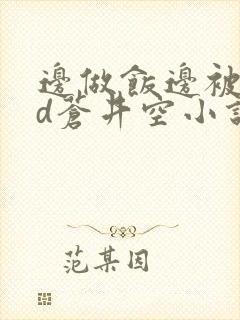 邊做飯邊被
d蒼井空小說
范某因